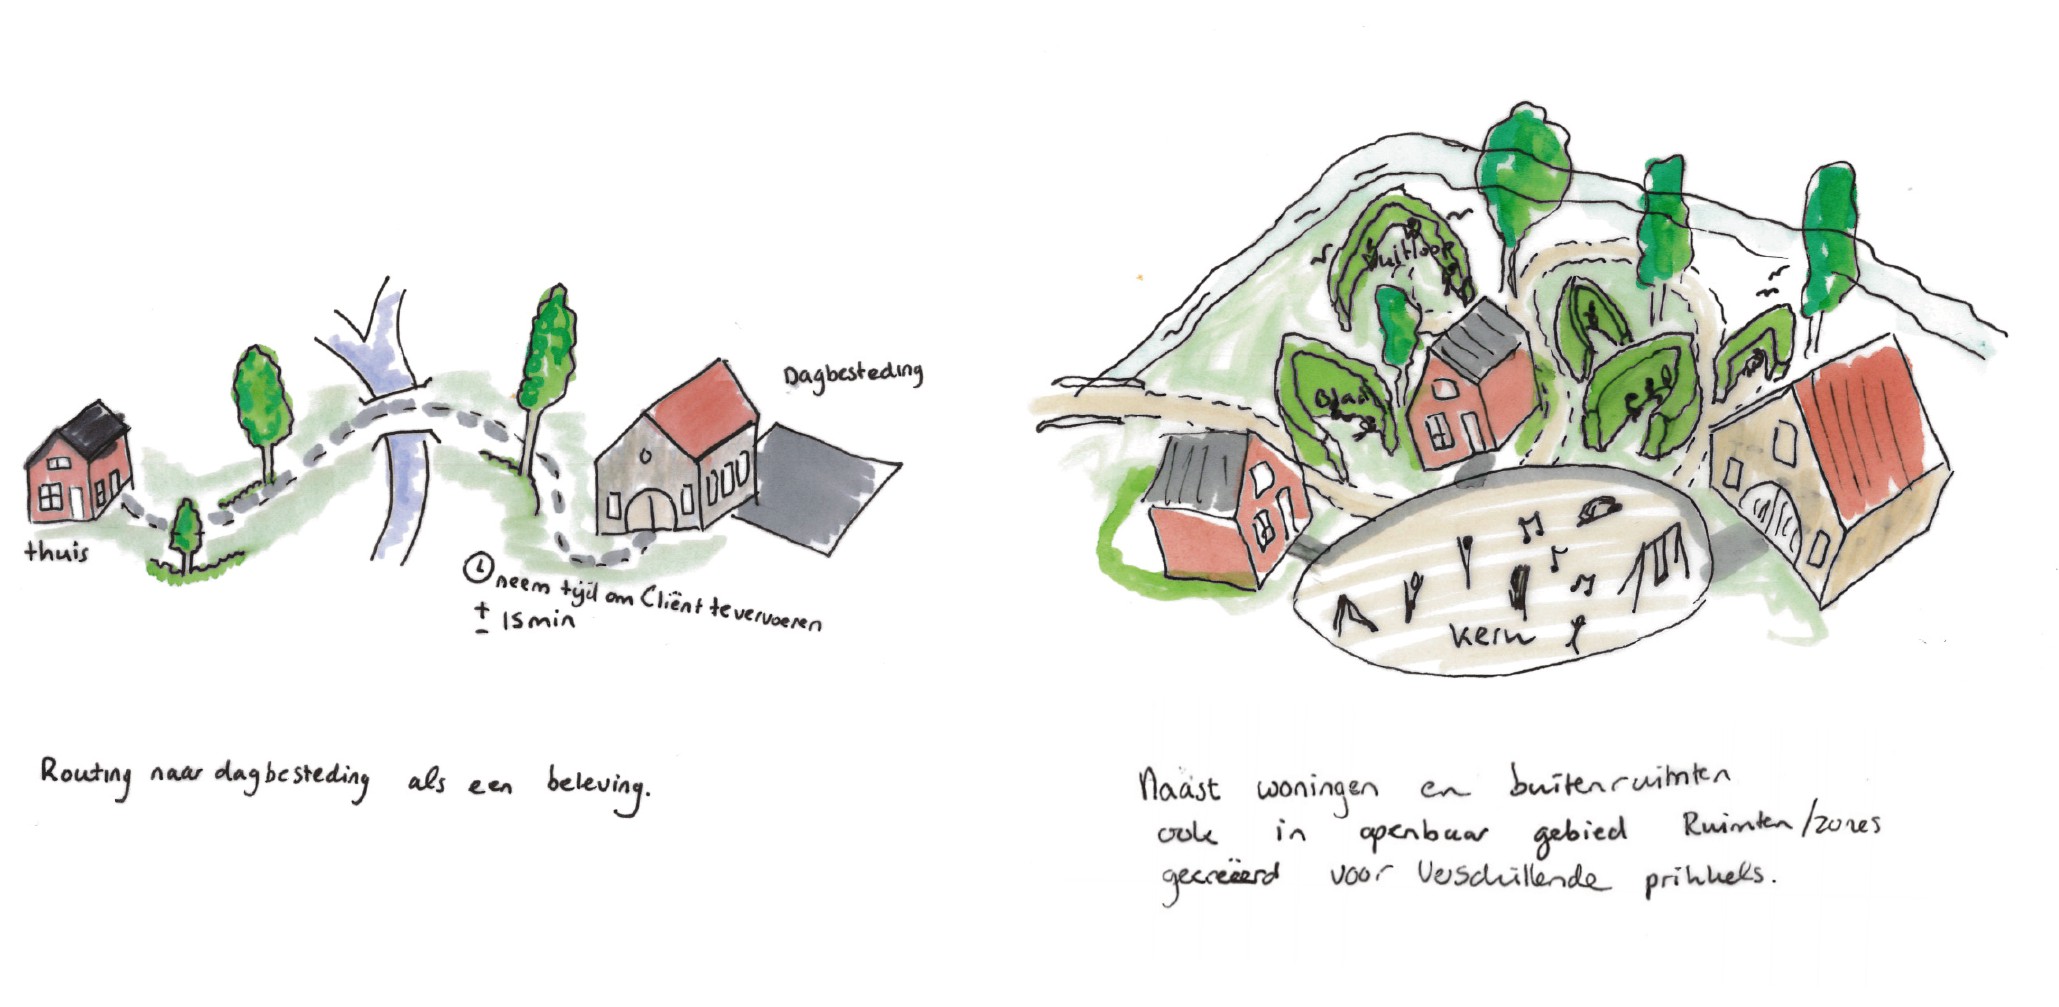 thuis
Dagbesteding
neem tijd om Cliënt te vervoeren
± 15 min
Routing naar dagbesteding als een beleving.
uitloop
kern
Naast woningen en buitenruimten
ook in openbaar gebied Ruimten/zones
gecreëerd voor Verschillende prikkels.